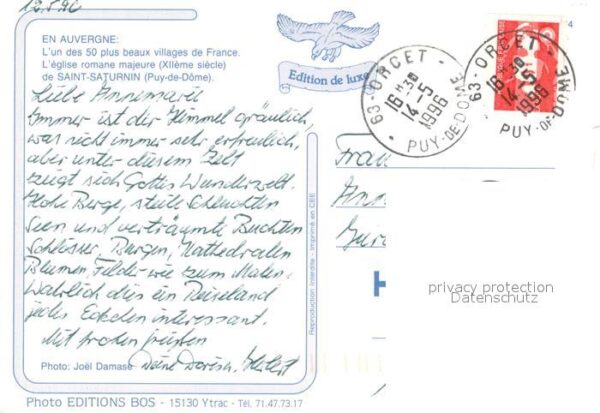 12.5.96
EN AUVERGNE:
L'un des 50 plus beaux villages de France.
L'église romane majeure (XIIème siècle)
de SAINT-SATURNIN (Puy-de-Dôme).
Edition de luxe
Liebe Annemarie
Immer ist der Himmel gräulich,
was nicht immer sehr erfreulich,
aber unter diesem Zelt
zeigt sich Gottes Wunderwelt.
Hohe Berge, steile Schluchten
Seen und verträumte Buchten
Schlösser, Burgen, Kathedralen
Blumen, Felder wie zum Malen.
Wahrlich dies ein Reiseland
jedes Eckchen interessant.
Mit frohen Grüßen
Deine Herbert
Photo: Joël Damase
Photo EDITIONS BOS - 15130 Ytrac - Tél. 71.47.73.17
Reproduction Interdite - Imprimé en CEE
63 - ORCET -
16 H 30
14 - 5
1996
PUY-DE-DOME
63 - ORCET -
16 H 30
14 - 5
1996
PUY-DE-DOME
4
Frau
Ann
H
privacy protection
Datenschutz